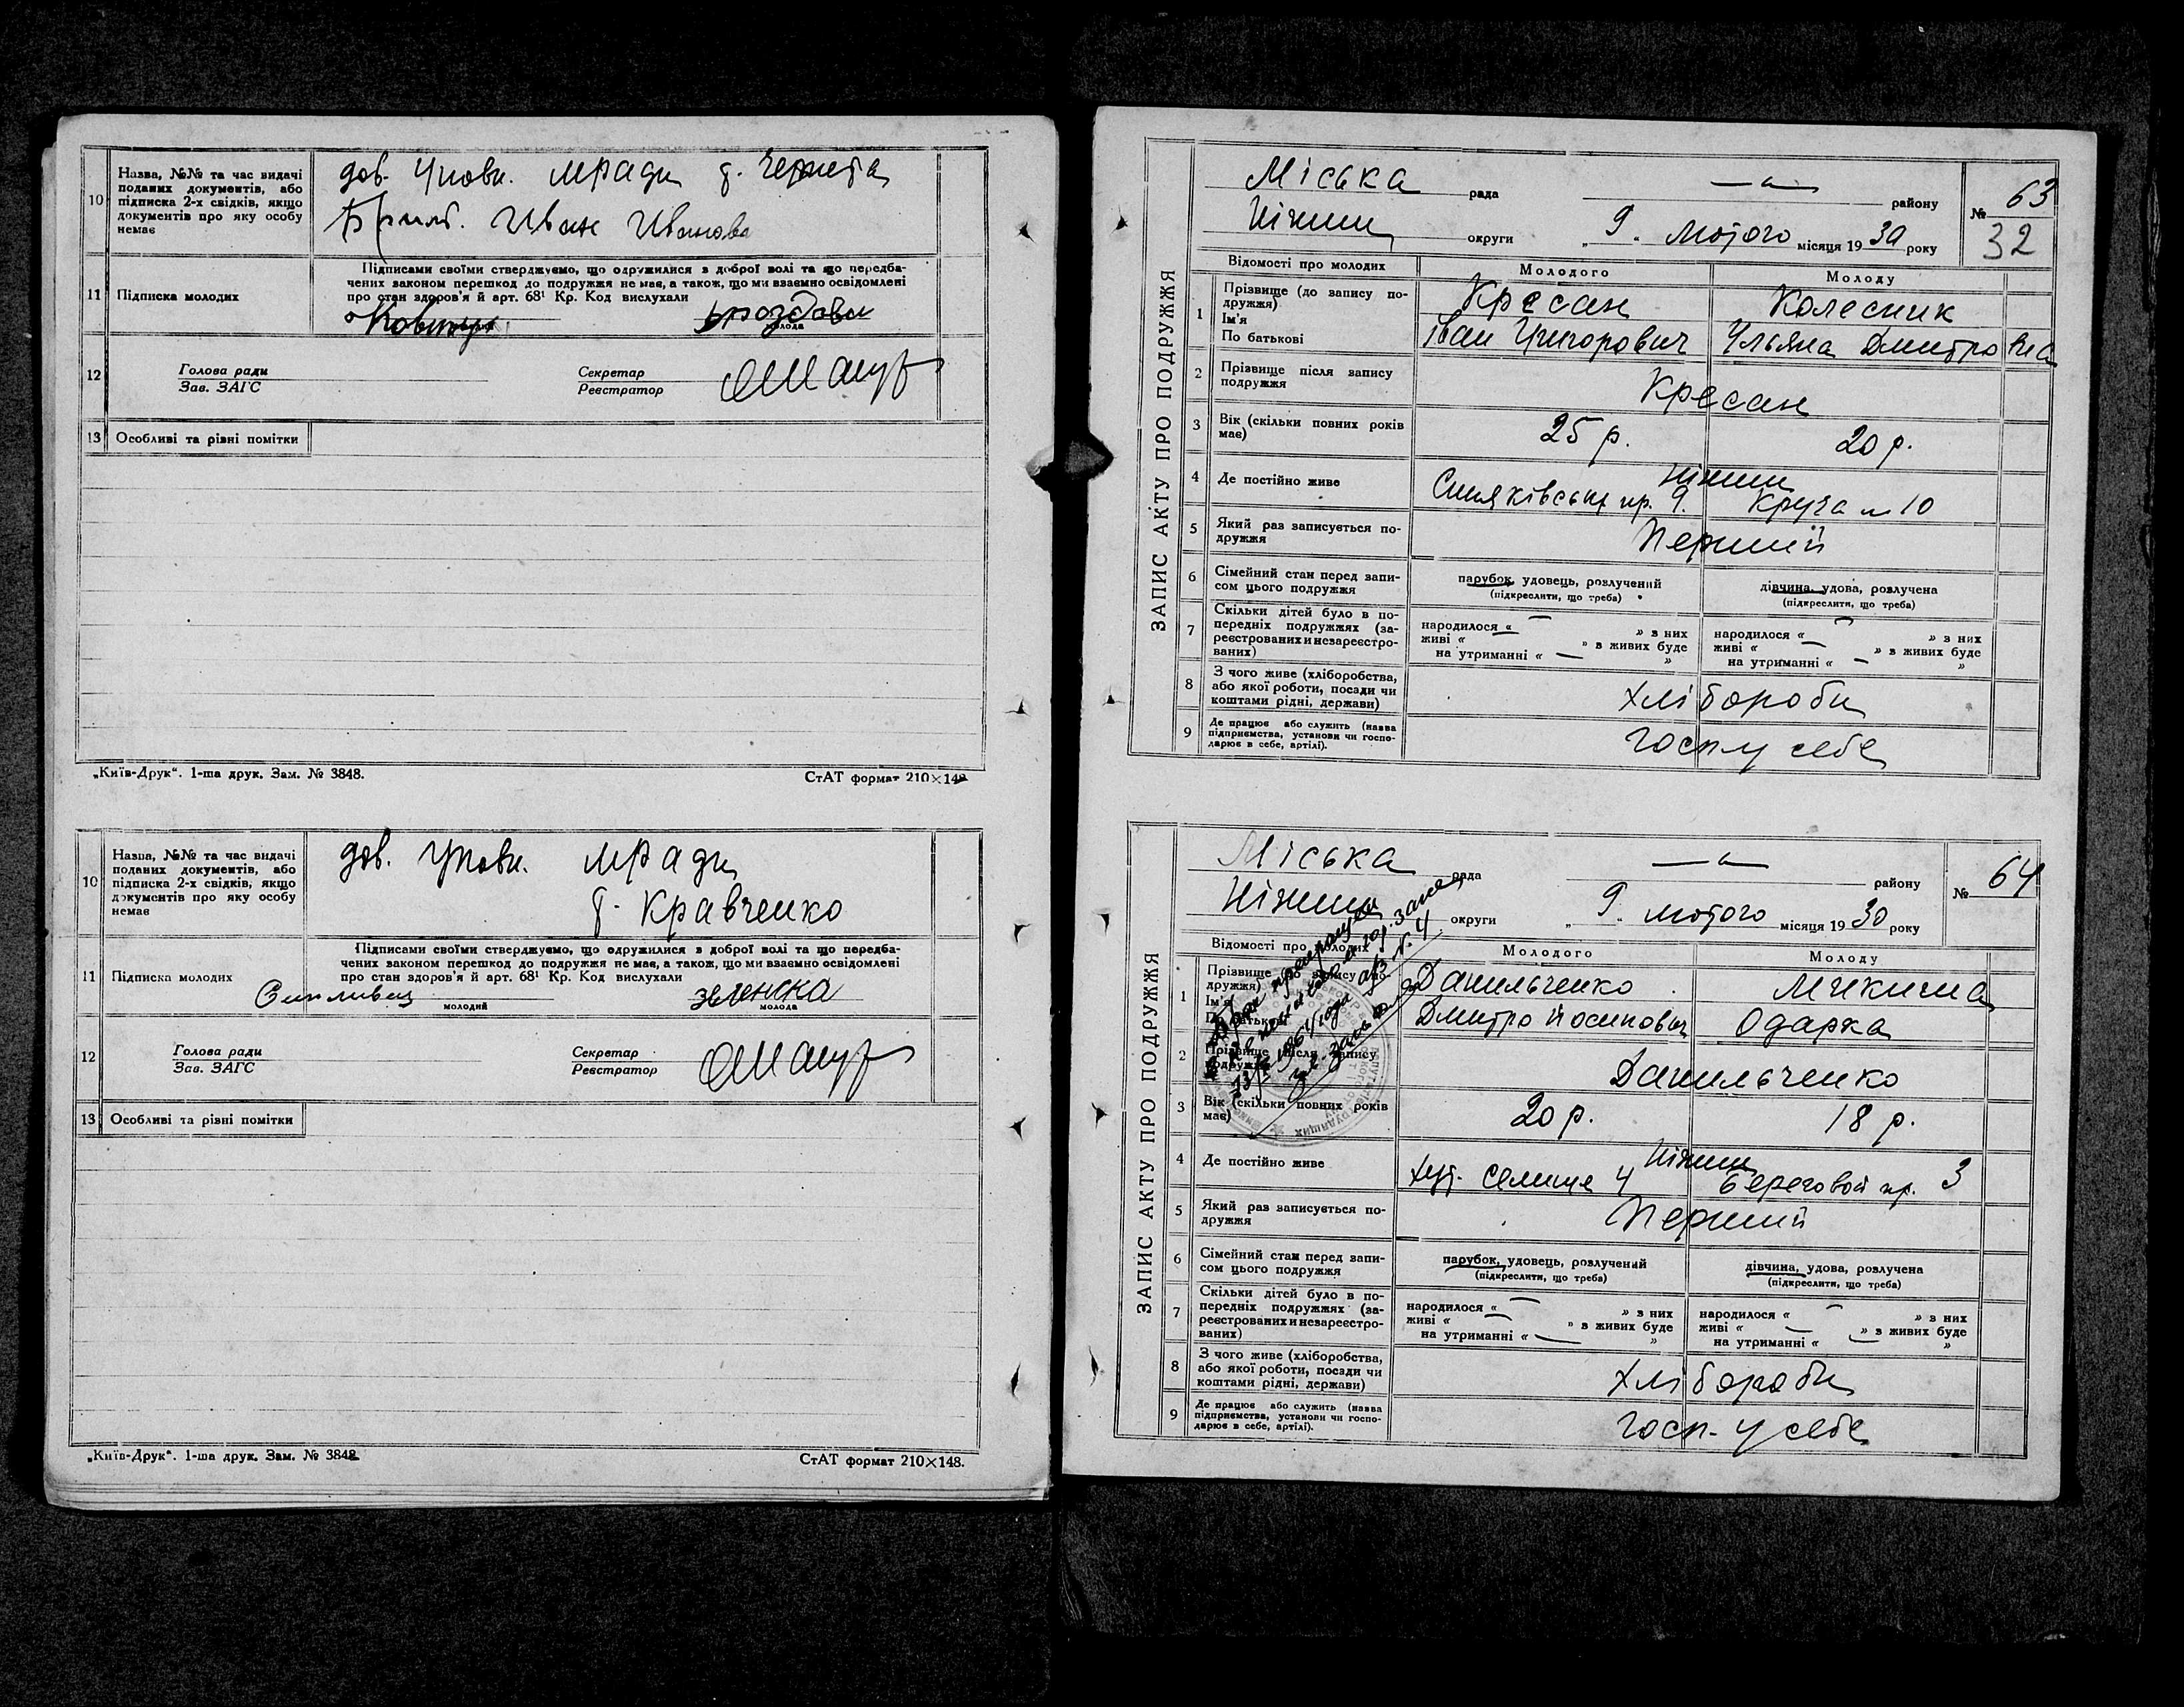 10 Назва, №№ та час видачі
поданих документів, або
підписка 2-х свідків, якщо
документів про яку особу
немає
дов. Упови. мРади т. Чернета
Іван Иванова
11 Підписка молодих
Підписами своїми стверджуємо, що одружилися з доброї волі та що передба-
чених законом перешкод до подружжя не має, а також, що ми взаємно освідомлені
про стан здоров'я й арт. 68¹ Кр. Код вислухали
молода
12 Голова ради
Зав. ЗАГС
Секретар
Реєстратор
13 Особливі та рівні помітки
„Київ-Друк“. 1-ша друк. Зам. № 3848.
СтАТ формат 210×148
10 Назва, №№ та час видачі
поданих документів, або
підписка 2-х свідків, якщо
документів про яку особу
немає
дов. Упови. мРади
т. Кравченко
11 Підписка молодих
Підписами своїми стверджуємо, що одружилися в доброї волі та що передба-
чених законом перешкод до подружжя не має, а також, що ми взаємно освідомлені
про стан здоров'я й арт. 68¹ Кр. Код вислухали
зеленска
молодий
молода
12 Голова ради
Зав. ЗАГС
Секретар
Реєстратор
13 Особливі та рівні помітки
„Київ-Друк“. 1-ша друк. Зам. № 3848
СтАТ формат 210×148.
ЗАПИС АКТУ ПРО ПОДРУЖЖЯ
Міська рада — „ — району
№ 63
32
Ніжин округи „ 9 . лютого місяця 1930 року
Відомості про молодих
Молодого
Молоду
1 Прізвище (до запису по-
дружжя)
Ім'я
По батькові
Кресан
Колесник
Іван Григорович
Ульяна Дмитровна
2 Прізвище після запису
подружжя
Кресан
3 Вік (скільки повних років
має)
25 р.
20 р.
4 Де постійно живе
Ніжин
Синяківський пр. 9.
Круча № 10
5 Який раз записується по-
дружжя
Перший
6 Сімейний стан перед запи-
сом цього подружжя
парубок, удовець, розлучений
(підкреслити, що треба)
дівчина, удова, розлучена
(підкреслити, що треба)
7 Скільки дітей було в по-
передніх подружжях (за-
реєстрованих и незареєстро-
ваних)
народилося « — » з них
живі « — » в живих буде
на утриманні « — »
народилося « — » з них
живі « — » в живих буде
на утриманні « — »
8 З чого живе (хліборобства,
або якої роботи, посади чи
коштами рідні, держави)
хлібороби
9 Де працює або служить (назва
підприємства, установи чи госпо-
дарює в себе, артілі).
госп. у себе
ЗАПИС АКТУ ПРО ПОДРУЖЖЯ
Міська рада — „ — району
№ 64
Ніжин округи „ 9. лютого місяця 1930 року
Відомості про молодих
Молодого
Молоду
1 Прізвище до запису по-
дружжя)
Ім'я
По батькові
Данильченко
Микиша
Дмитро Йосипович
Одарка
2 Прізвище після запису
подружжя
Данильченко
3 Вік (скільки повних років
має)
20 р.
18 р.
4 Де постійно живе
Ніжин
хут. Селище 4
Береговой пр. 3
5 Який раз записується по-
дружжя
Перший
6 Сімейний стан перед запи-
сом цього подружжя
парубок, удовець, розлучений
(підкреслити, що треба)
дівчина, удова, розлучена
(підкреслити, що треба)
7 Скільки дітей було в по-
передніх подружжях (за-
реєстрованих и незареєстро-
ваних)
народилося « — » з них
живі « » в живих буде
на утриманні « — »
народилося « — » з них
живі « — » в живих буде
на утриманні « — »
8 З чого живе (хліборобства,
або якої роботи, посади чи
коштами рідні, держави)
хлібороби
9 Де працює або служить (назва
підприємства, установи чи госпо-
дарює в себе, артілі).
госп. у себе